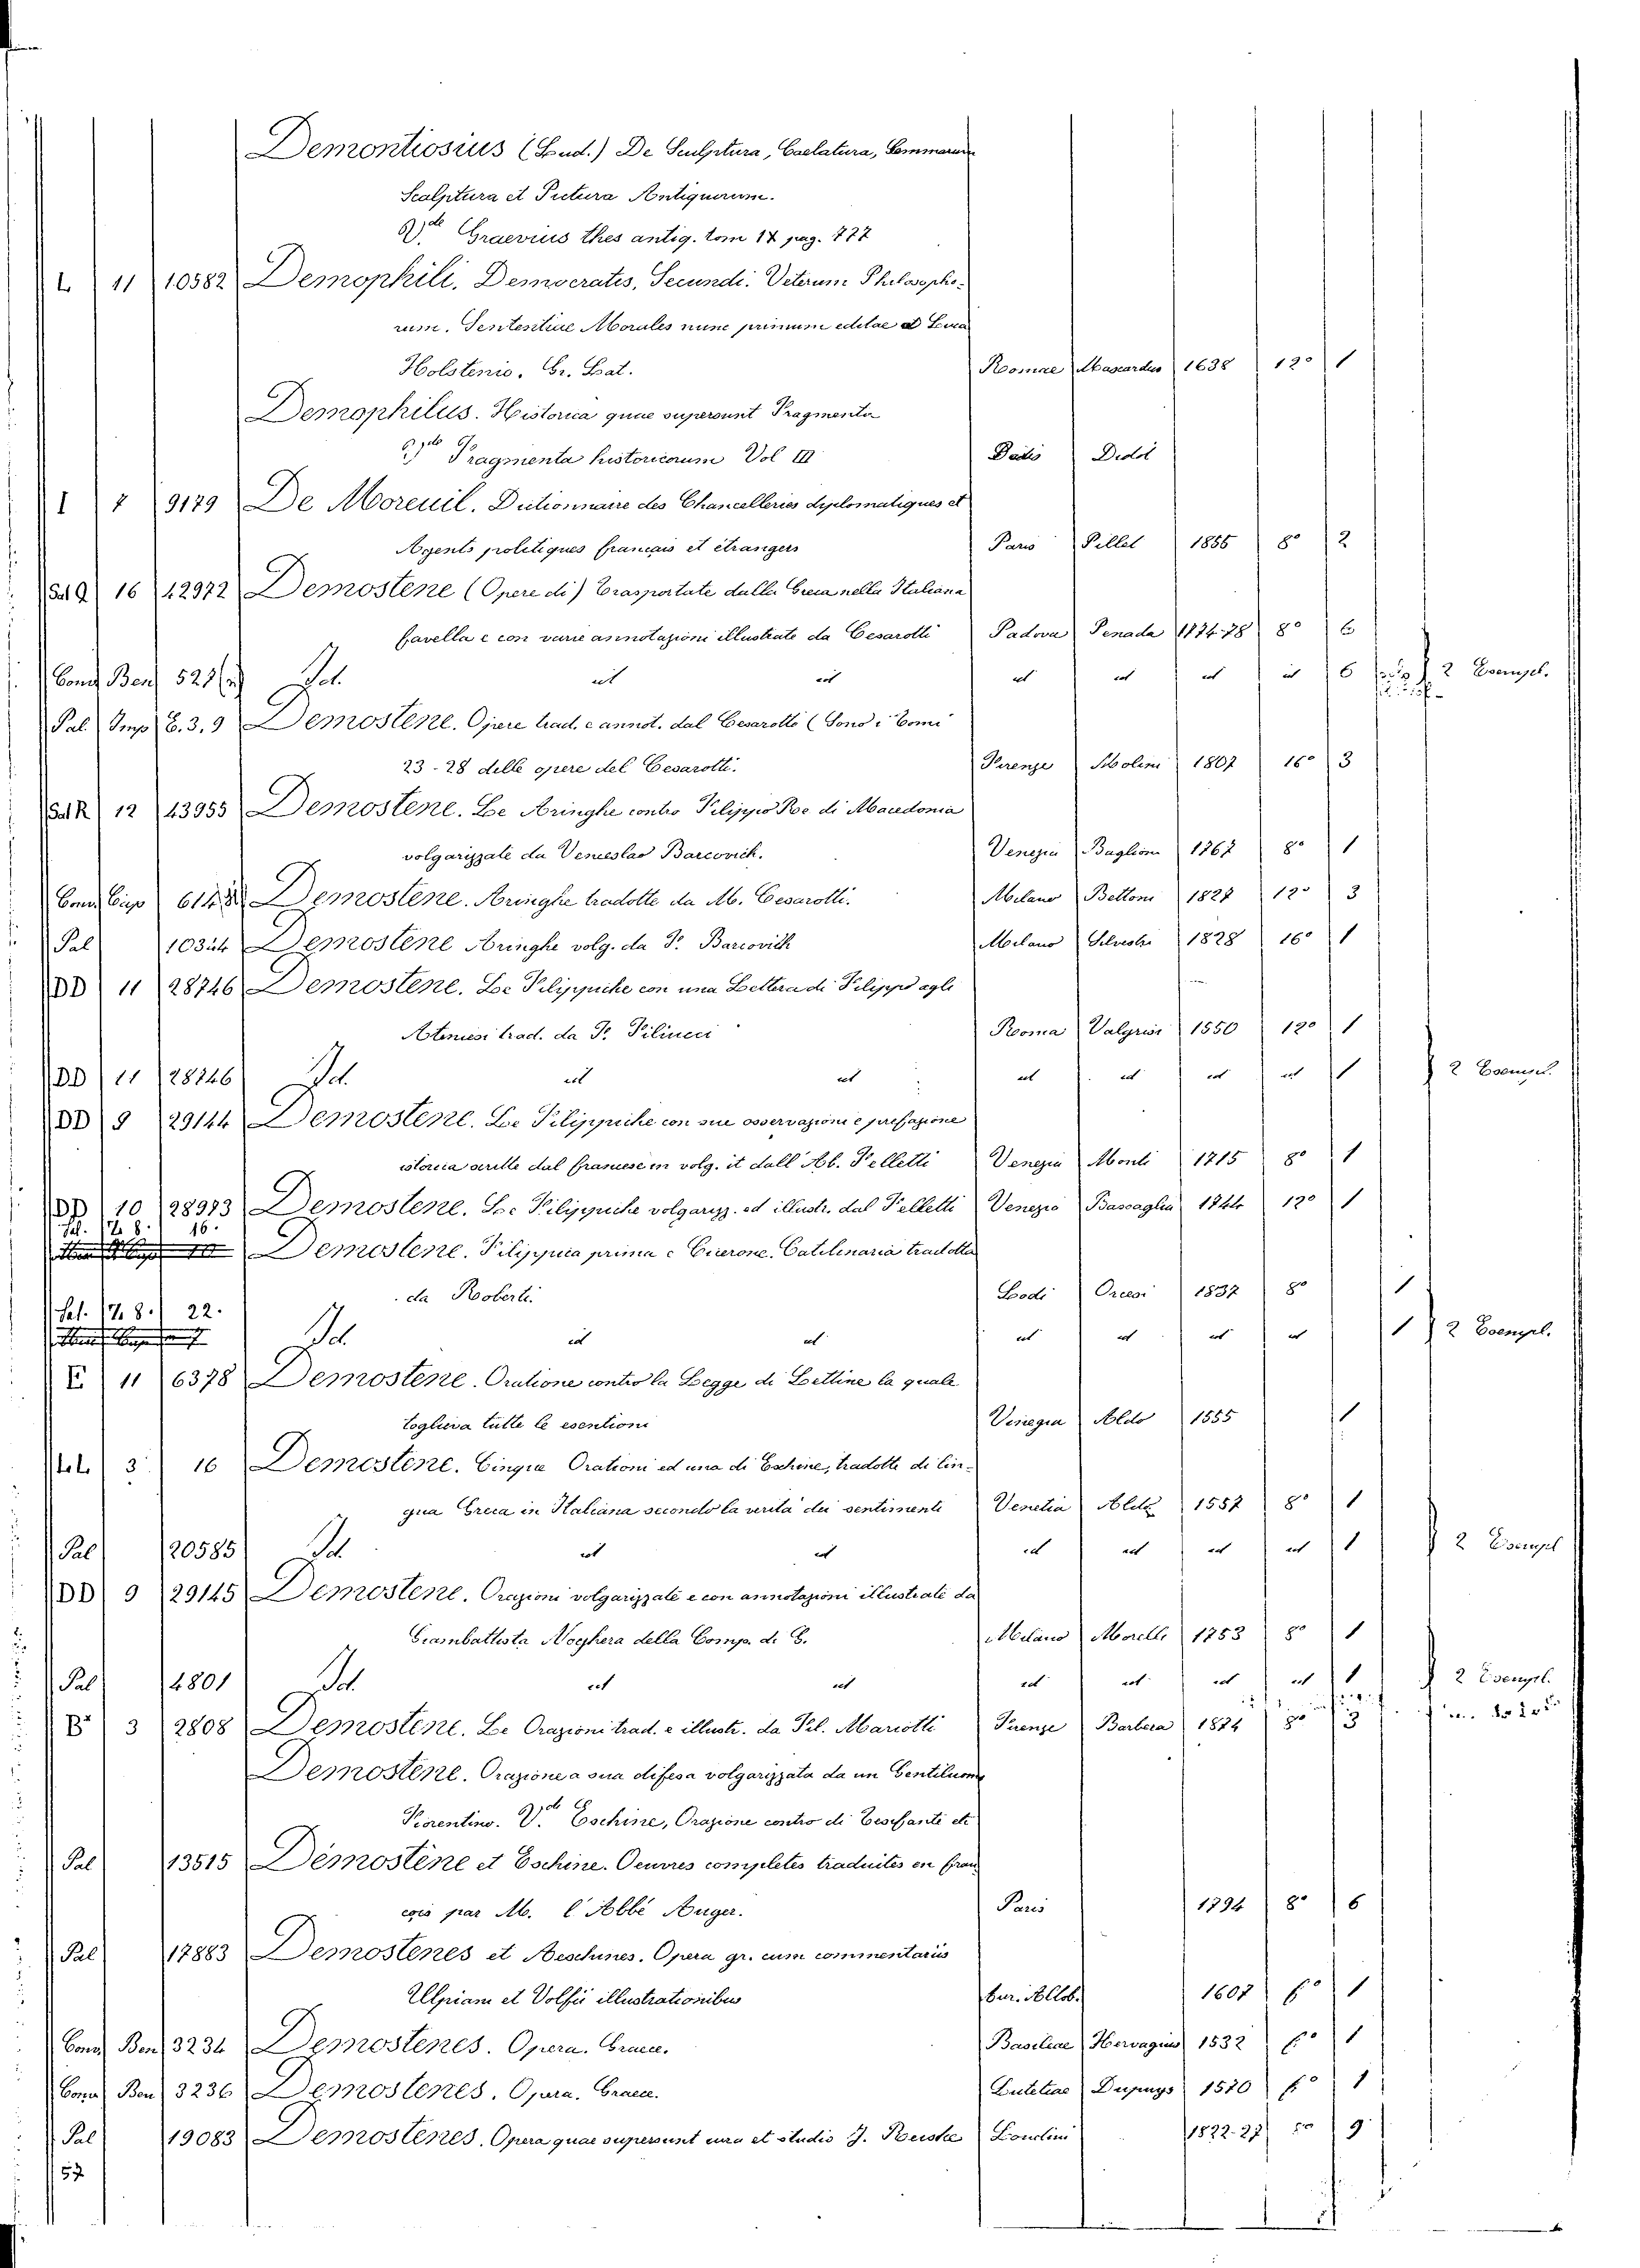 Demontiosius (Lud.) De Sculptura, Caelatura, Gemmarum
Scalptura et Pictura Antiquorum.
V.de Graevius thes antiq. tom 1X pag. 777
L 11 10582 Demophili, Democratis, Secundi. Veterum Philosopho-
rum. Sententiae Morales nunc primum editae a Luca
Holstenio. Gr. Lat. Romae Mascardus 1638 12° 1
Demophilus. Historica quae supersunt Fragmenta
V.de Fragmenta historicorum Vol III Didot
I 7 9179 De Moreuil. Dictionnaire des Chancelleries diplomatiques et
Agents politiques français et étrangers Paris Pillet 1855 8° 2
Sal Q 16 42972 Demostene (Opere di) Trasportate dalla Greca nella Italiana
favella e con varie annotazioni illustrate da Cesarotti Padova Penada 1774-78 8° 6
Cons Ben 528 Id. id id id id id id 6 2 Esempl.
Pal. Imp E. 3. 9 Demostene. Opere trad. e annot. dal Cesarotti (Sono i Tomi
23-28 delle opere del Cesarotti. Firenze Molini 1807 16° 3
Sal R 12 43955 Demostene. Le Aringhe contro Filippo Re di Macedonia
volgarizzate da Venceslao Barcovich. Venezia Baglioni 1767 8° 1
Cons Cap Demostene. Aringhe tradotte da M. Cesarotti. Milano Bettoni 1827 12° 3
Pal Demostene Aringhe volg. da F. Barcovich Milano Silvestri 1828 16° 1
DD 11 28746 Demostene. Le Filippiche con una Lettera di Filippo agli
Ateniesi trad. da F. Filineci Roma Valgrisi 1550 12° 1
DD 11 28746 Id. id id id id id id 1 2 Esempl.
DD 9 29144 Demostene. Le Filippiche con sue osservazioni e prefazione
istorica scritte dal francese in volg. it dall' Ab. Felletti Venezia Monti 1715 8° 1
DD 10 28973 Demostene. Le Filippiche volgarizz. ed illustr. dal Felletti Venezia Bassaglia 1744 12° 1
Sal. 17. 8. 16.
Demostene. Filippica prima e Cicerone. Catilinaria tradotta
da Roberti Lodi Orcesi 1837 8° 1
Sal. 17. 8. 22.
Id. id id id id id id 1 2 Esempl.
E 11 6378 Demostene. Oratione contro la Legge di Lettine la quale
toglieva tutte le esentioni Vinegia Aldo 1555 1
3 16 Demostene. Cinque Orationi ed una di Eschine, tradotte di lin-
gua Greca in Italiana secondo la verità dei sentimenti Venetia Aldo 1557 8° 1
Pal 20585 Id. id id id id id id 1 2 Esempl
DD 9 29145 Demostene. Orazioni volgarizzate e con annotazioni illustrate da
Giambattista Noghera della Comp. di G. Milano Morelli 1753 8° 1
Pal 4801 Id. id id id id id id 1 2 Esempl.
B 3 2808 Demostene. Le Orazioni trad. e illustr. da Fil. Mariotti Firenze Barbera 1874 8° 3
Demostene. Orazione a sua difesa volgarizzata da un Gentiluomo
Fiorentino. V.de Eschine, Orazione contro di Tesifonte etc
Pal 13515 Démostène et Eschine. Oeuvres completes traduites en fran
cois par M. l'Abbé Auger. Paris 1794 8° 6
Pal 17883 Demostenes et Aeschines. Opera gr. cum commentariis
Ulpiani et Volfii illustrationibus Aur. Allob. 1607 f° 1
Cons Ben 3234 Demostenes. Opera. Graece. Basileae Hervagius 1532 f° 1
Cons Ben 3236 Demostenes. Opera. Graece. Lutetiae Dupuys 1570 f° 1
Pal 19083 Demostenes. Opera quae supersunt cura et studio J. Reiske Londini 1822-27 8° 9
57